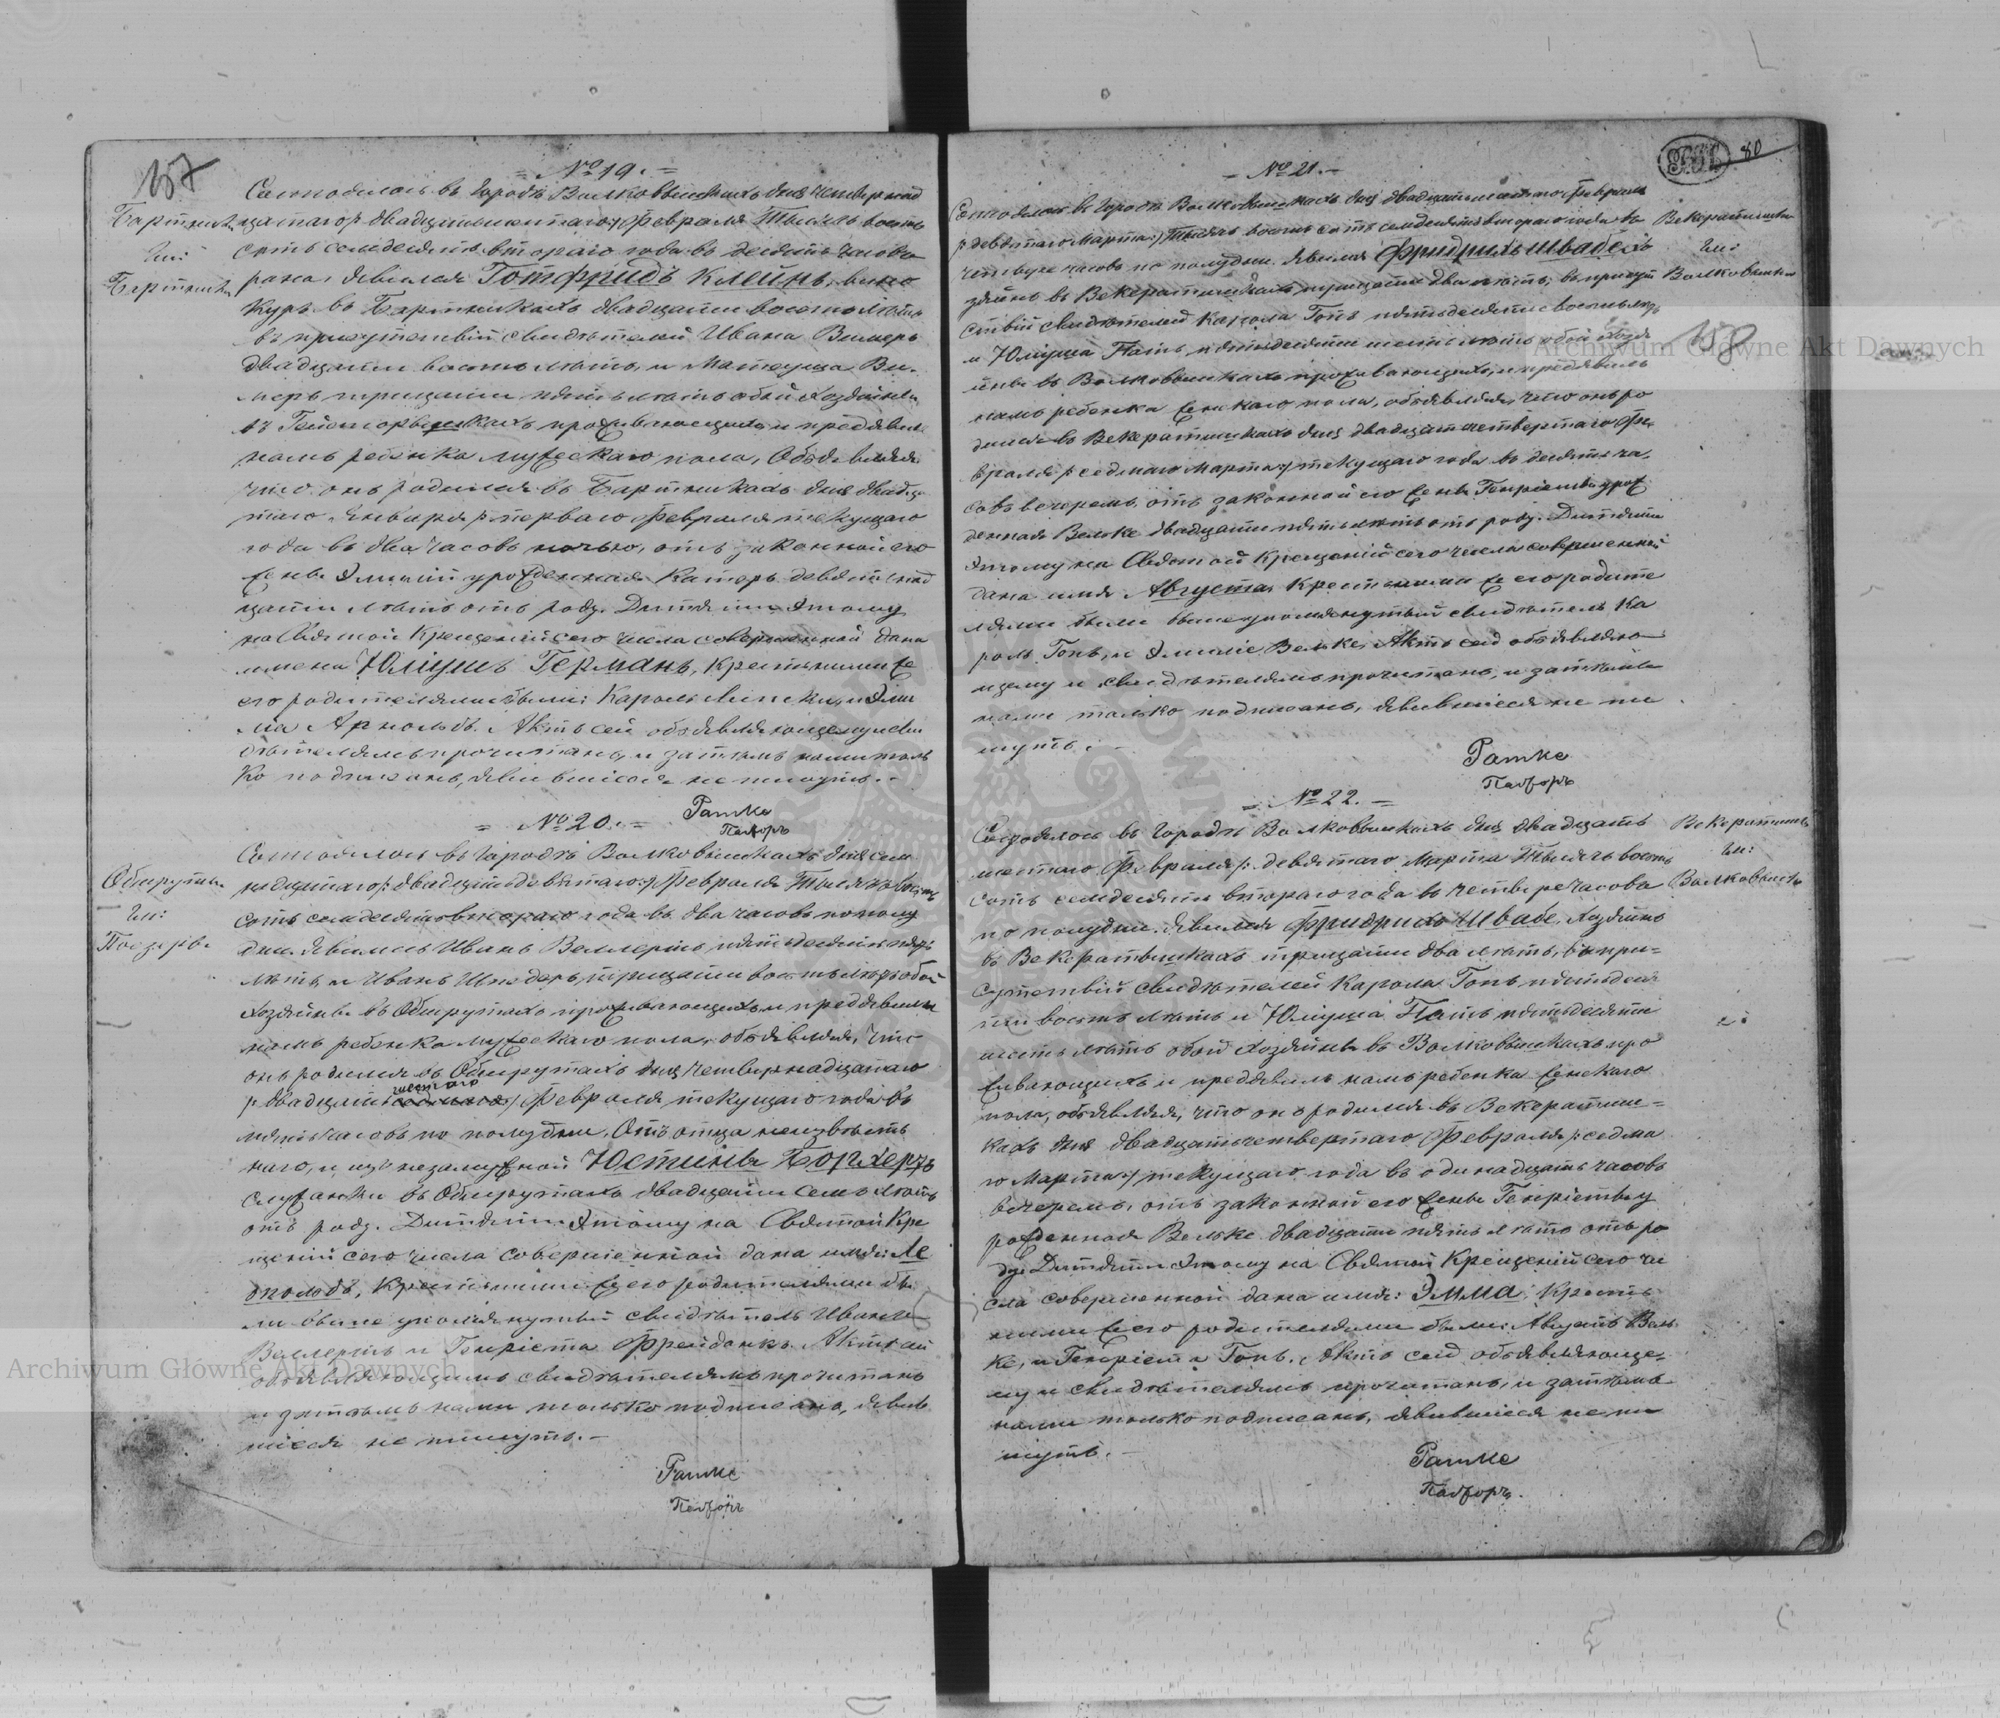 157
= № 19. =
Состоялось въ городѣ Волковышкахъ дня четырнад
Бартники
цатаго /: двадцать шестаго :/ Февраля тысяча восемь
сотъ семдесятъ втораго года въ десять часовъ
Гм:
Бартники
рана, явился Готфридъ Клейнъ, вино
куръ въ Бартникахъ двадцати восьми лѣтъ
въ присутствіи свидѣтелей Ивана Вимеръ
двадцати восьми лѣтъ, и Матеуша Ви-
меръ тридцати пяти лѣтъ обои хозяйны
въ проживающихъ, и предявилъ
намъ ребенка мужескаго пола, Объявляя
что онъ родился въ Бартникахъ дня двадца
таго Января /: перваго Февраля текущаго
года въ два часовъ ночью, отъ законной его
жены Эмиліи урожденная Катеръ девятнад
цати лѣтъ отъ роду. Дитяти этому
на Святой Крещеніи сего числа совершенной дана
имена Юліушъ Германъ, Крестными же
его родителями были: Кароль Липски, и Эми
лія Арнольдъ. Актъ сей объявляющему и сви
дѣтелямъ прочитанъ, и затѣмъ нами толь
ко подписанъ, явившіеся не пишутъ. -
Ратке
Пасторъ
= № 20. =
Состоялось въ городѣ Волковышкахъ дня сем
Обшруты
Гм:
Поезеры
надцатаго /: двадцать девятаго :/ Февраля тысяча восемь
сотъ семдесятъ втораго года въ два часовъ пополу
дни. Явились Иванъ Веллертъ, пятьдесятъ
лѣтъ, и Иванъ Шнедеръ, тридцати восемь лѣтъ обои
хозяйны въ Обшрутахъ проживающихъ, и предявили
намъ ребенка мужескаго пола, объявляя, что
онъ родился въ Обшрутахъ дня четырнадцатаго
шестаго
/: двадцать :/ Февраля текущаго года въ
пять часовъ по полудни. Отъ отца неизвѣст
наго, и изъ незамужной Юстины Борхертъ
служанки въ Обшрутахъ двадцати семъ лѣтъ
отъ роду. Дитяти этому на Святой Кре
щеніи сего числа совершенной дана имя: Ле
опольдъ, Крестными же его родителями бы
ли выше упомянутый свидѣтель Иванъ
Веллертъ и Генріета Фрейданкъ. Актъ сей
объявляющимъ свидѣтелямъ прочитанъ
и затѣмъ нами только подписанъ, явив
шіеся не пишутъ. -
Ратке
Пасторъ
80
- № 21. -
Состоялось въ городѣ Волковышкахъ дня двадцать шестаго Февраля
/: девятаго Марта :/ тысяча восемь сотъ семдесятъ втораго года въ
Векератишки
Гм:
Волковышки
четыре часовъ по полудни. Явился Фридрихъ Швабе, хо
зяйнъ въ Векератишкахъ тридцати два лѣтъ, въ присут
ствіи свидѣтелей Карола Гопъ пятьдесяти восемь лѣтъ
и Юліуша Патъ пятьдесяти шесть лѣтъ обои хозя
йны въ Волковышкахъ проживающихъ, и предявилъ
намъ ребенка женскаго пола, объявляя, что онъ ро
дился въ Векератишкахъ дня двадцать четвертаго Фе
враля /: седмаго Марта :/ текущаго года въ десять ча
совъ вечеремъ, отъ законной его жены Генріеты урож
денная Вельке двадцати пять лѣтъ отъ роду. Дитяти
этому на Святой Крещеніи сего числа совершенной
дана имя Августа, Крестными же его родите
лями были вышеупомянутый свидѣтель Ка
роль Гопъ, и Эмилія Вельке, Актъ сей объявляю
щему и свидѣтелямъ прочитанъ, и затѣмъ
нами только подписанъ, явившіеся не пи
шутъ. -
Ратке
Пасторъ
= № 22. =
Состоялось въ городѣ Волковышкахъ дня двадцать
Векератишки
Гм:
Волковышки
шестаго Февраля /: девятаго Марта тысяча восемь
сотъ семдесятъ втораго года въ четыре часовъ
по полудни. Явился Фридрихъ Швабе, хозяйнъ
въ Векератишкахъ тридцати два лѣтъ, въ при-
сутствіи свидѣтелей Карола Гопъ пятьдеся
ти восемь лѣтъ и Юліуша Патъ пятьдесяти
шесть лѣтъ обои хозяйны въ Волковышкахъ про
живающихъ и предявилъ намъ ребенка женскаго
пола, объявляя, что онъ родился въ Векератиш-
кахъ дня двадцать четвертаго Февраля /: седма
го Марта :/ текущаго года въ одинадцать часовъ
вечеремъ, отъ законной его жены Генріеты у
рожденная Вельке двадцати пять лѣтъ отъ ро
ду. Дитяти этому на Святой Крещеніи сего чи
сла совершенной дана имя: Эмма, Крест
ными же его родителями были: Августъ Вель
ке, и Генріета Гопъ. Актъ сей объявляюще-
му и свидѣтелямъ прочитанъ, и затѣмъ
нами только подписанъ, явившіеся не пи
шутъ. -
Ратке
Пасторъ.
Archiwum Główne Akt Dawnych
Archiwum Główne Akt Dawnych